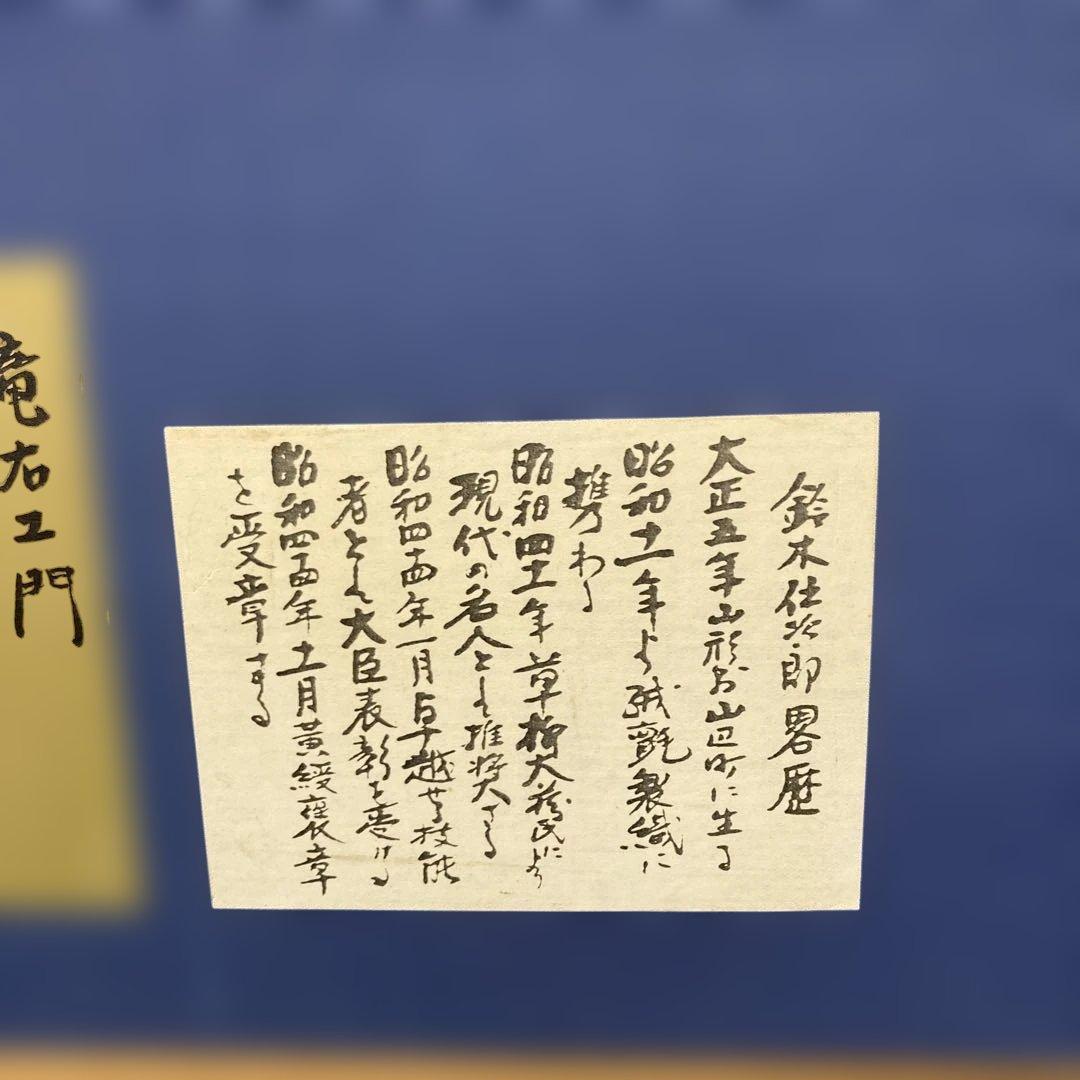 鈴木仕次郎畧歴
大正五年山形県山辺町に生る
昭和十一年より絨氈製織に
携わる
昭和四十一年草柳大蔵氏により
現代の名人として推奨さる
昭和四十四年一月卓越せる技能
者として大臣表彰を受ける
昭和四十四年十一月黄綬褒章
を受章する
竜右エ門